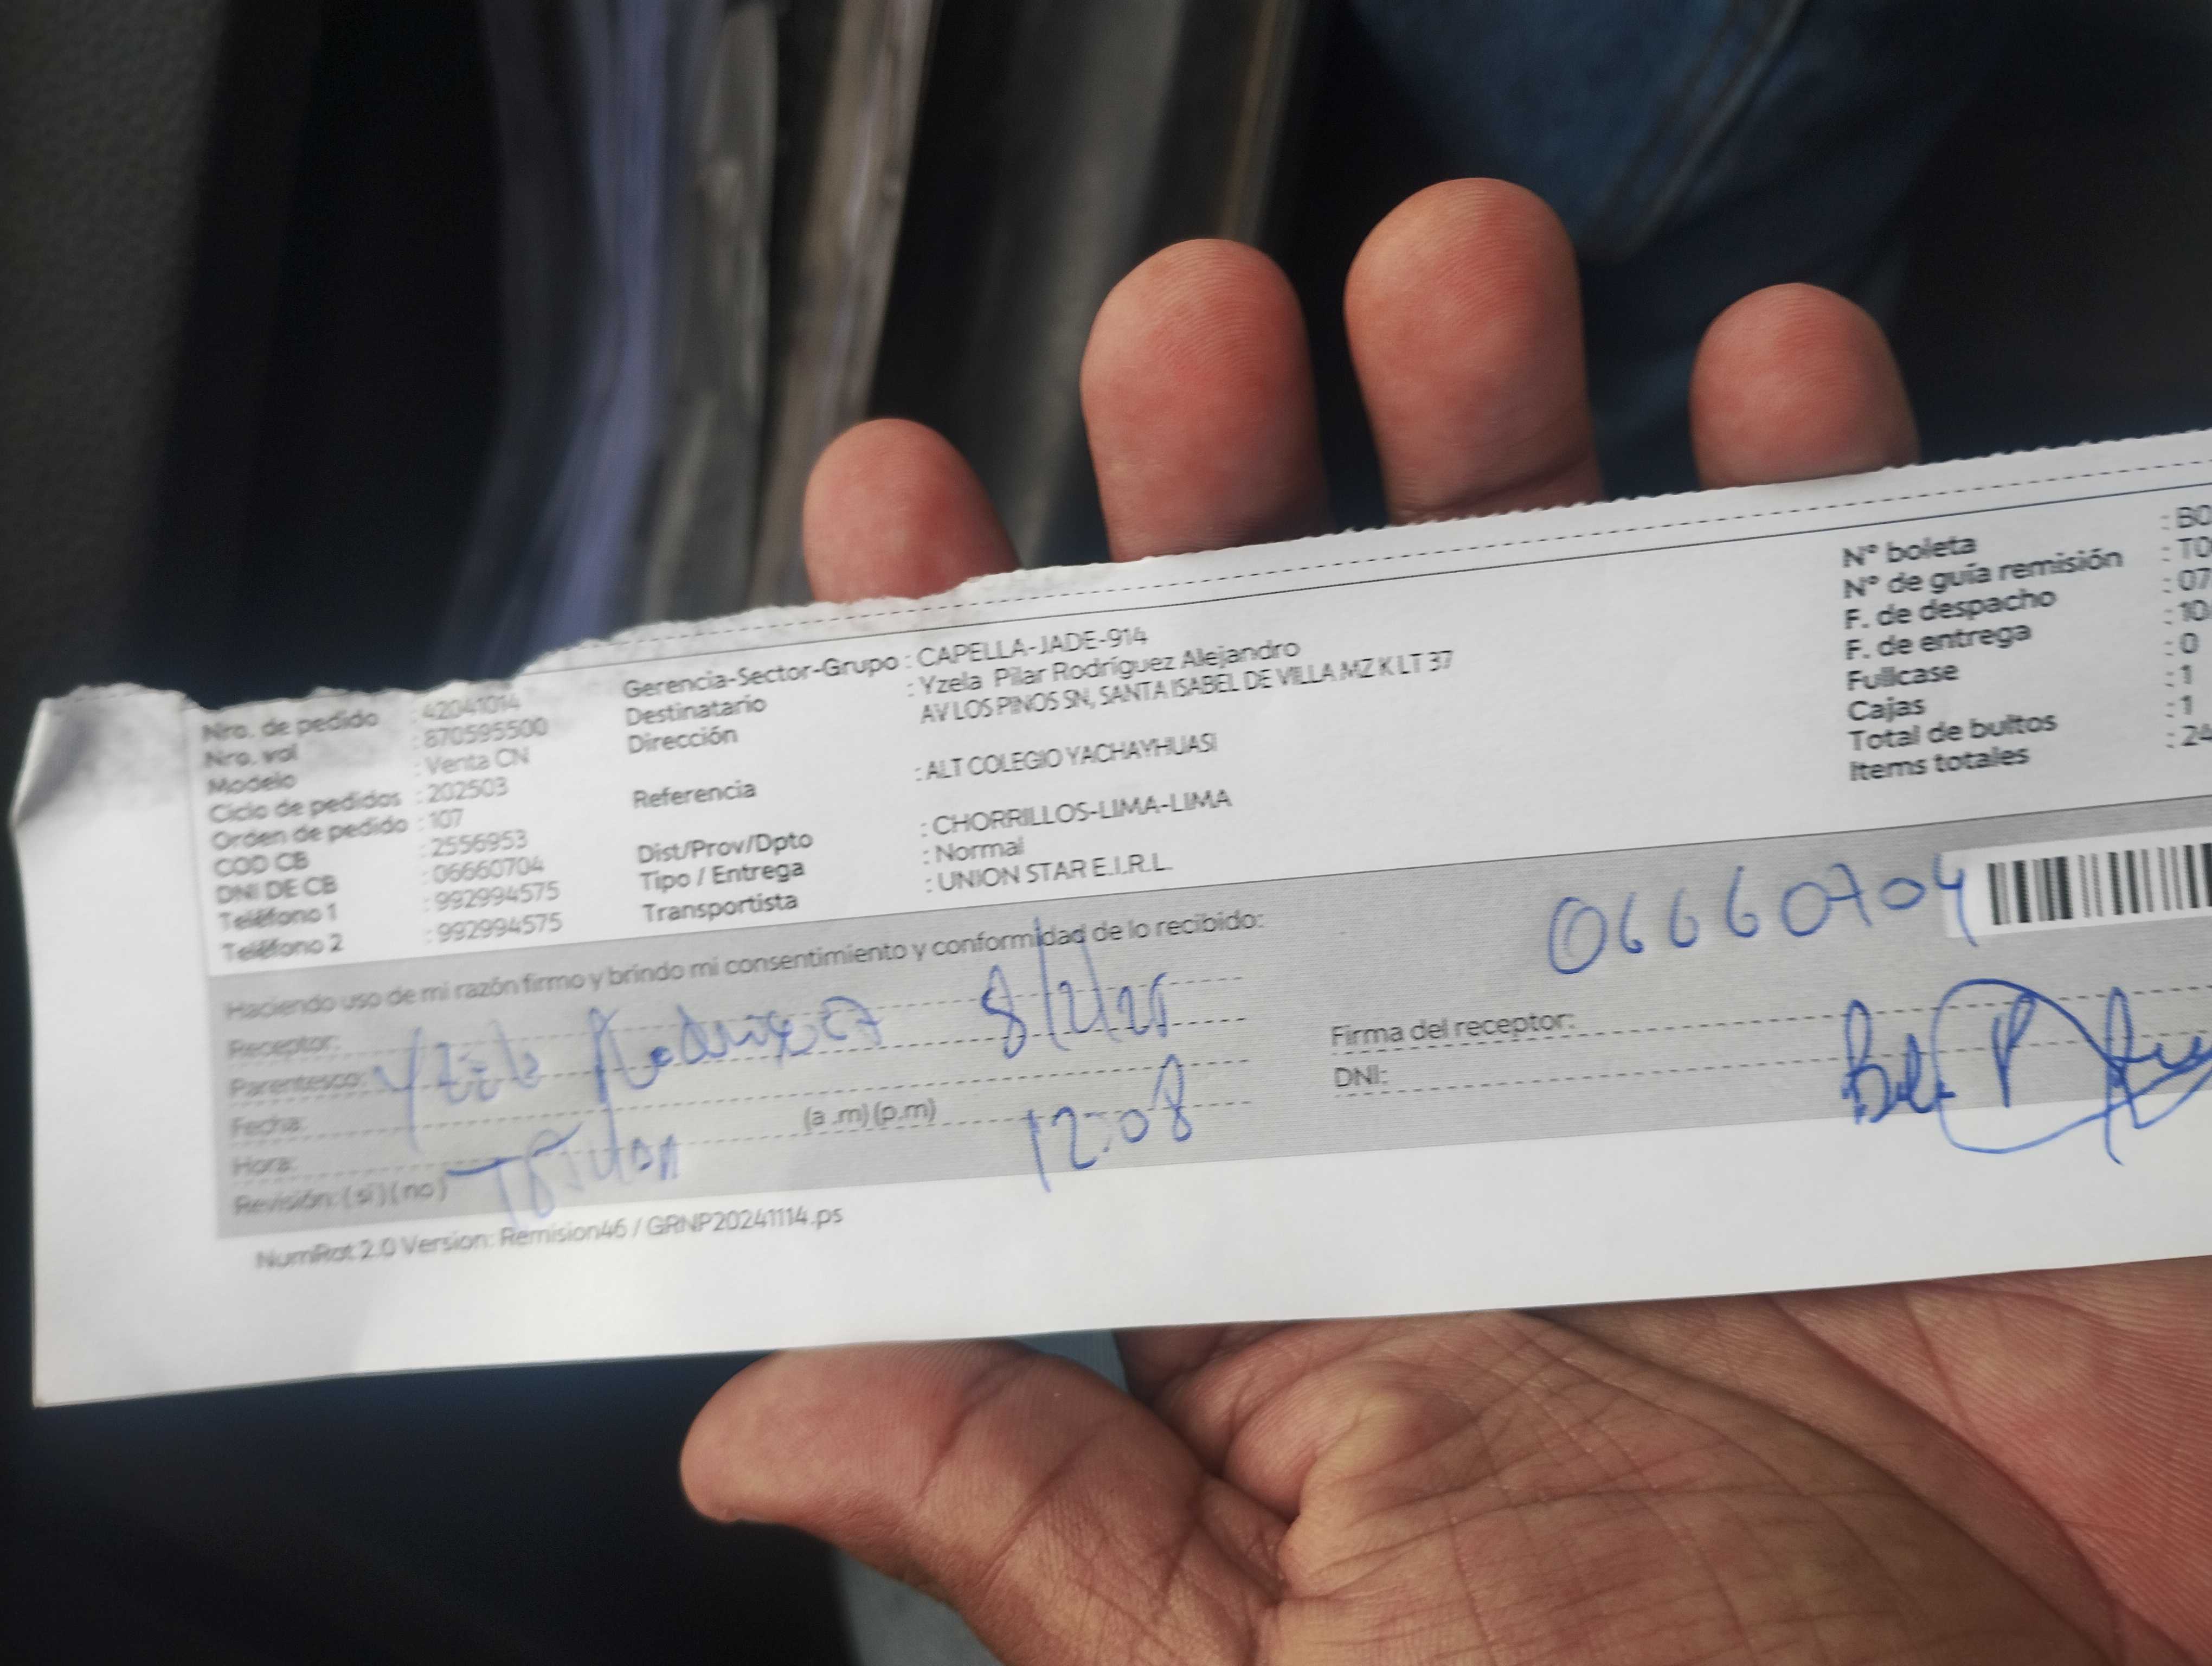 Nro. de pedido : 42041014
Nro. vol : 870595500
Modelo : Venta CN
Ciclo de pedidos : 202503
Orden de pedido : 107
COD CB : 2556953
DNI DE CB : 06660704
Teléfono 1 : 992994575
Teléfono 2 : 992994575
Gerencia-Sector-Grupo : CAPELLA-JADE-914
Destinatario : Yzela Pilar Rodríguez Alejandro
Dirección AV LOS PINOS SN, SANTA ISABEL DE VILLA MZ K LT 37
Referencia : ALT COLEGIO YACHAYHUASI
Dist/Prov/Dpto : CHORRILLOS-LIMA-LIMA
Tipo / Entrega : Normal
Transportista : UNION STAR E.I.R.L.
N° boleta : B0
N° de guía remisión : T0
F. de despacho : 07
F. de entrega : 10
Fullcase : 0
Cajas : 1
Total de bultos : 1
Items totales : 24
Haciendo uso de mi razón firmo y brindo mi consentimiento y conformidad de lo recibido:
06660704
Receptor:
Parentesco:
Rodriguez 8/2/25
Fecha:
Hora: (a .m) (p.m) 12:08
Revisión: ( si ) ( no )
Firma del receptor:
DNI:
NumRot 2.0 Version: Remision46 / GRNP20241114.ps